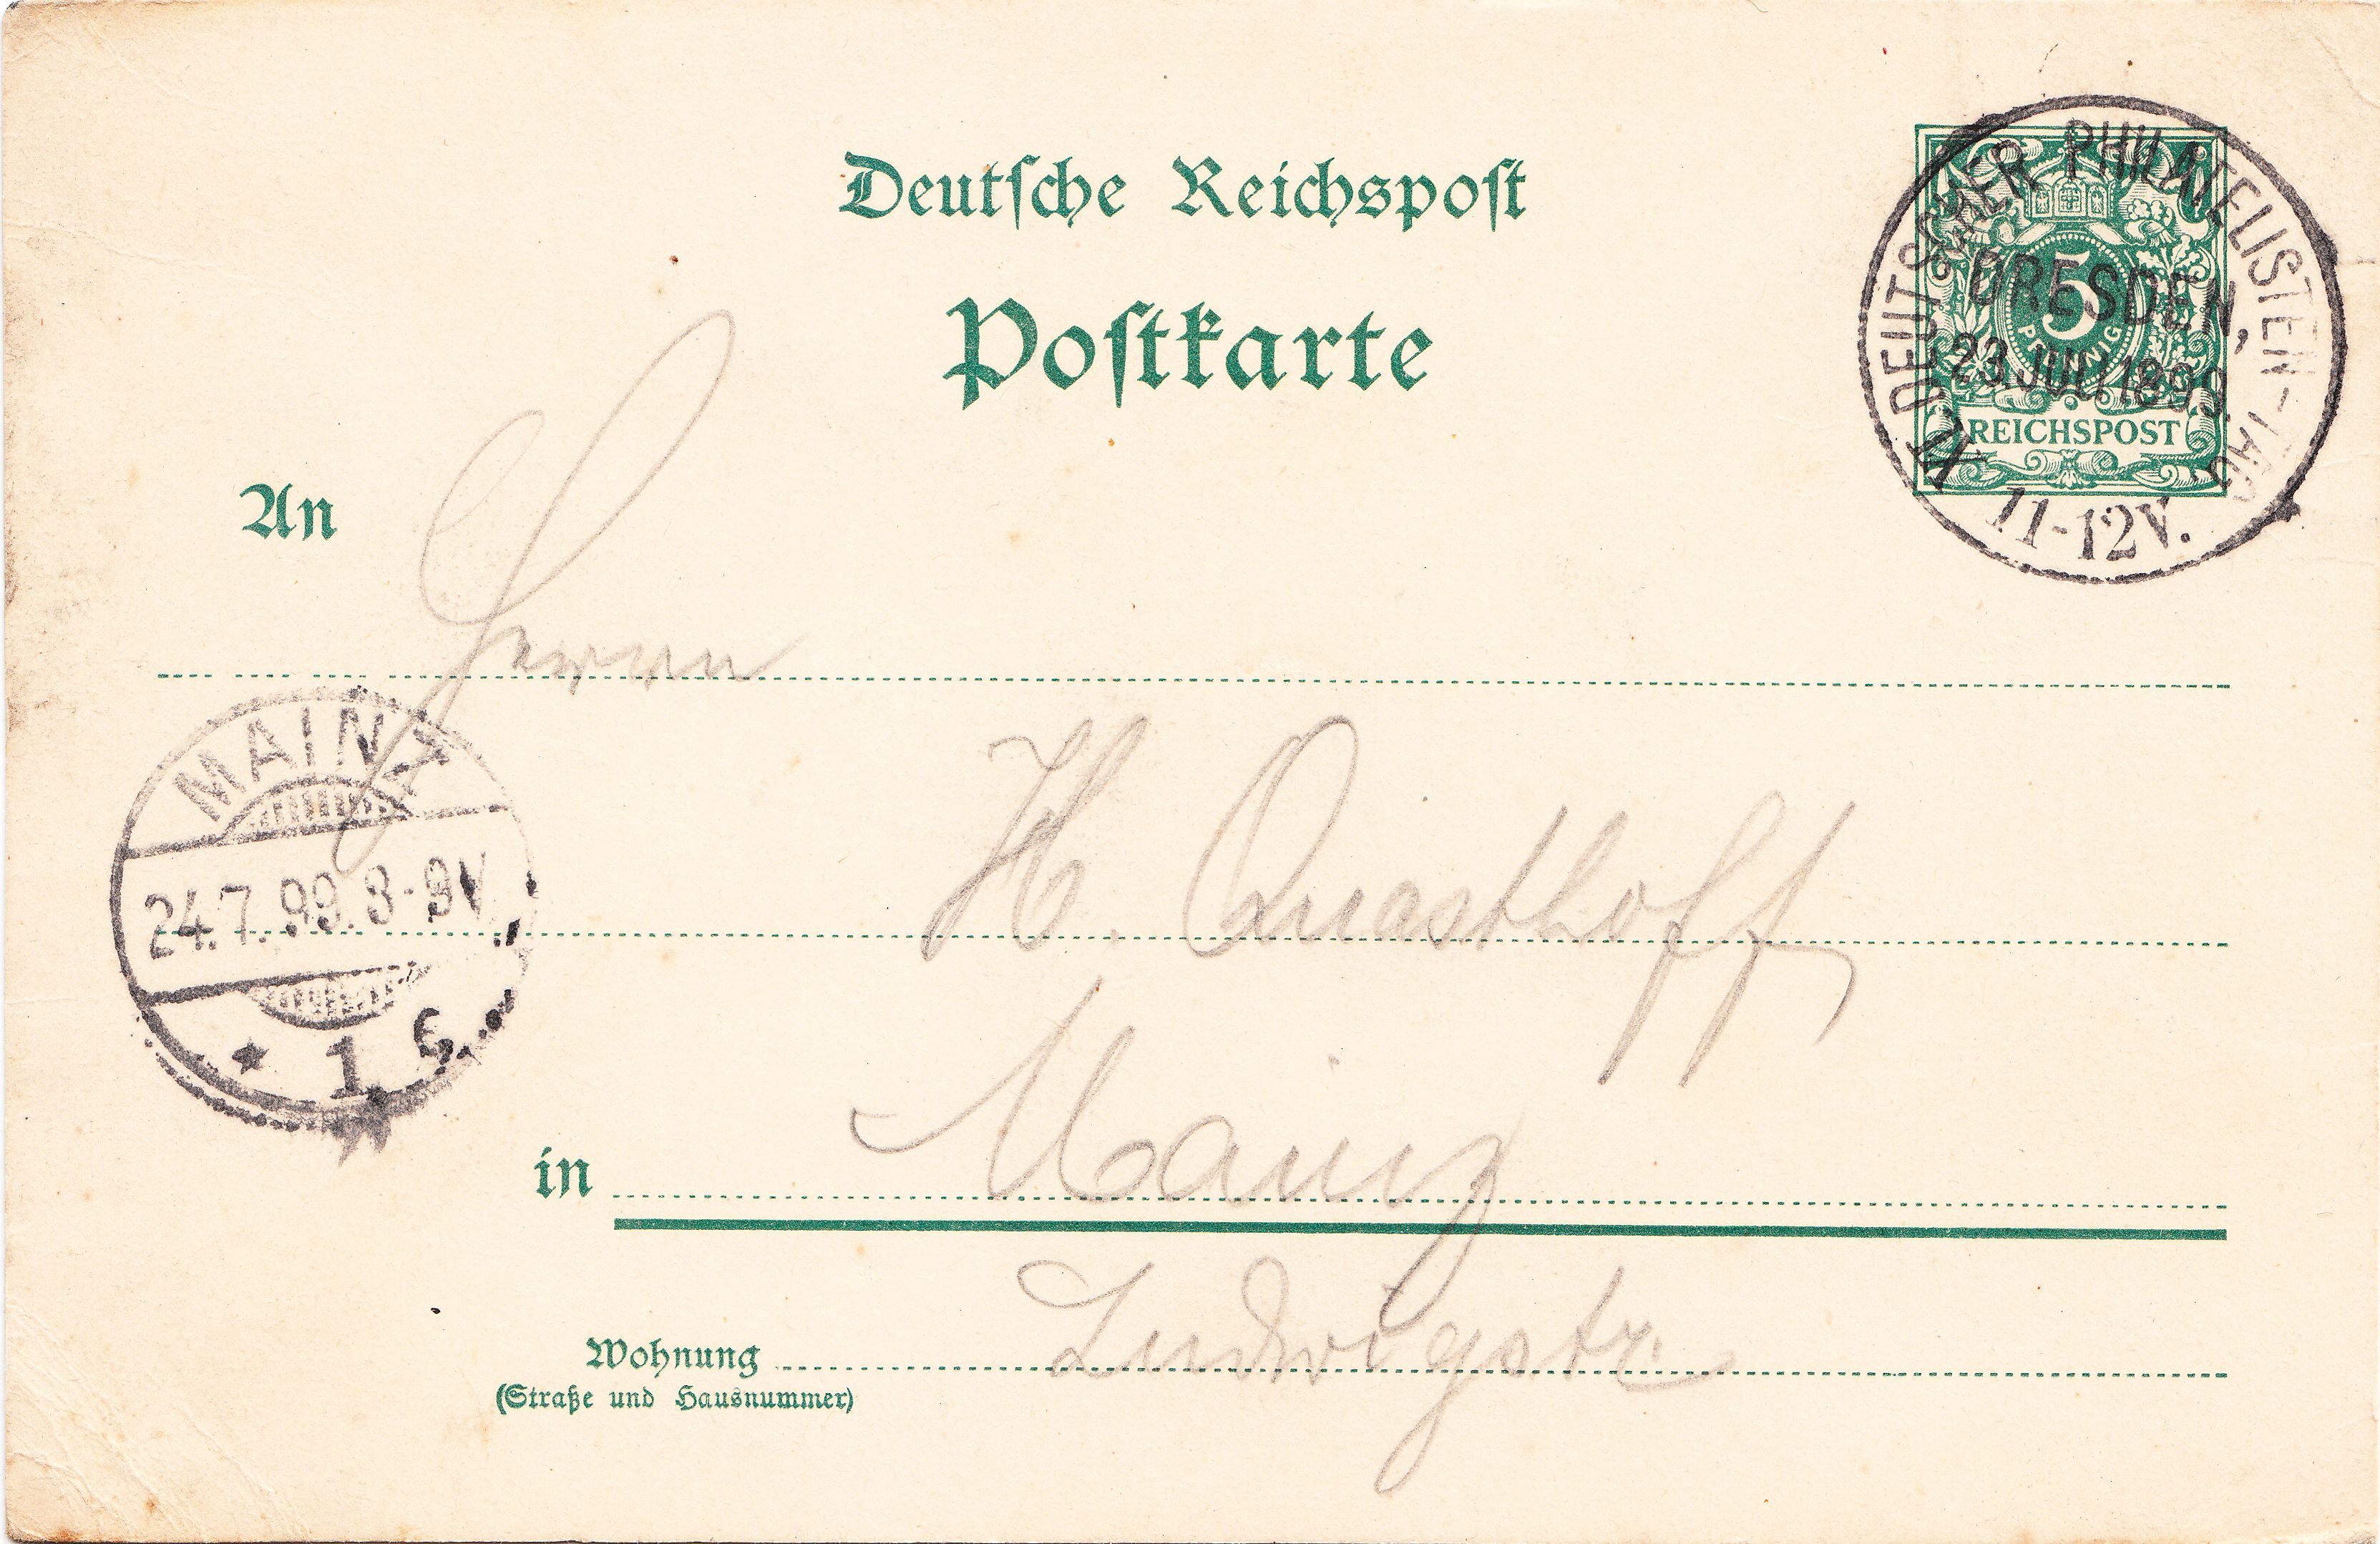 Deutsche Reichspost
Postkarte
XI. DEUTSCHER PHILATELISTEN-TAG
DRESDEN,
23 JULI 1899.
11-12V.
5
PFENNIG
REICHSPOST
An
Herrn
MAINZ
24.7.99. 8-9V.
* 1 c.
H. Quasthoff
in Mainz
Wohnung Ludwigstr.
(Straße und Hausnummer)